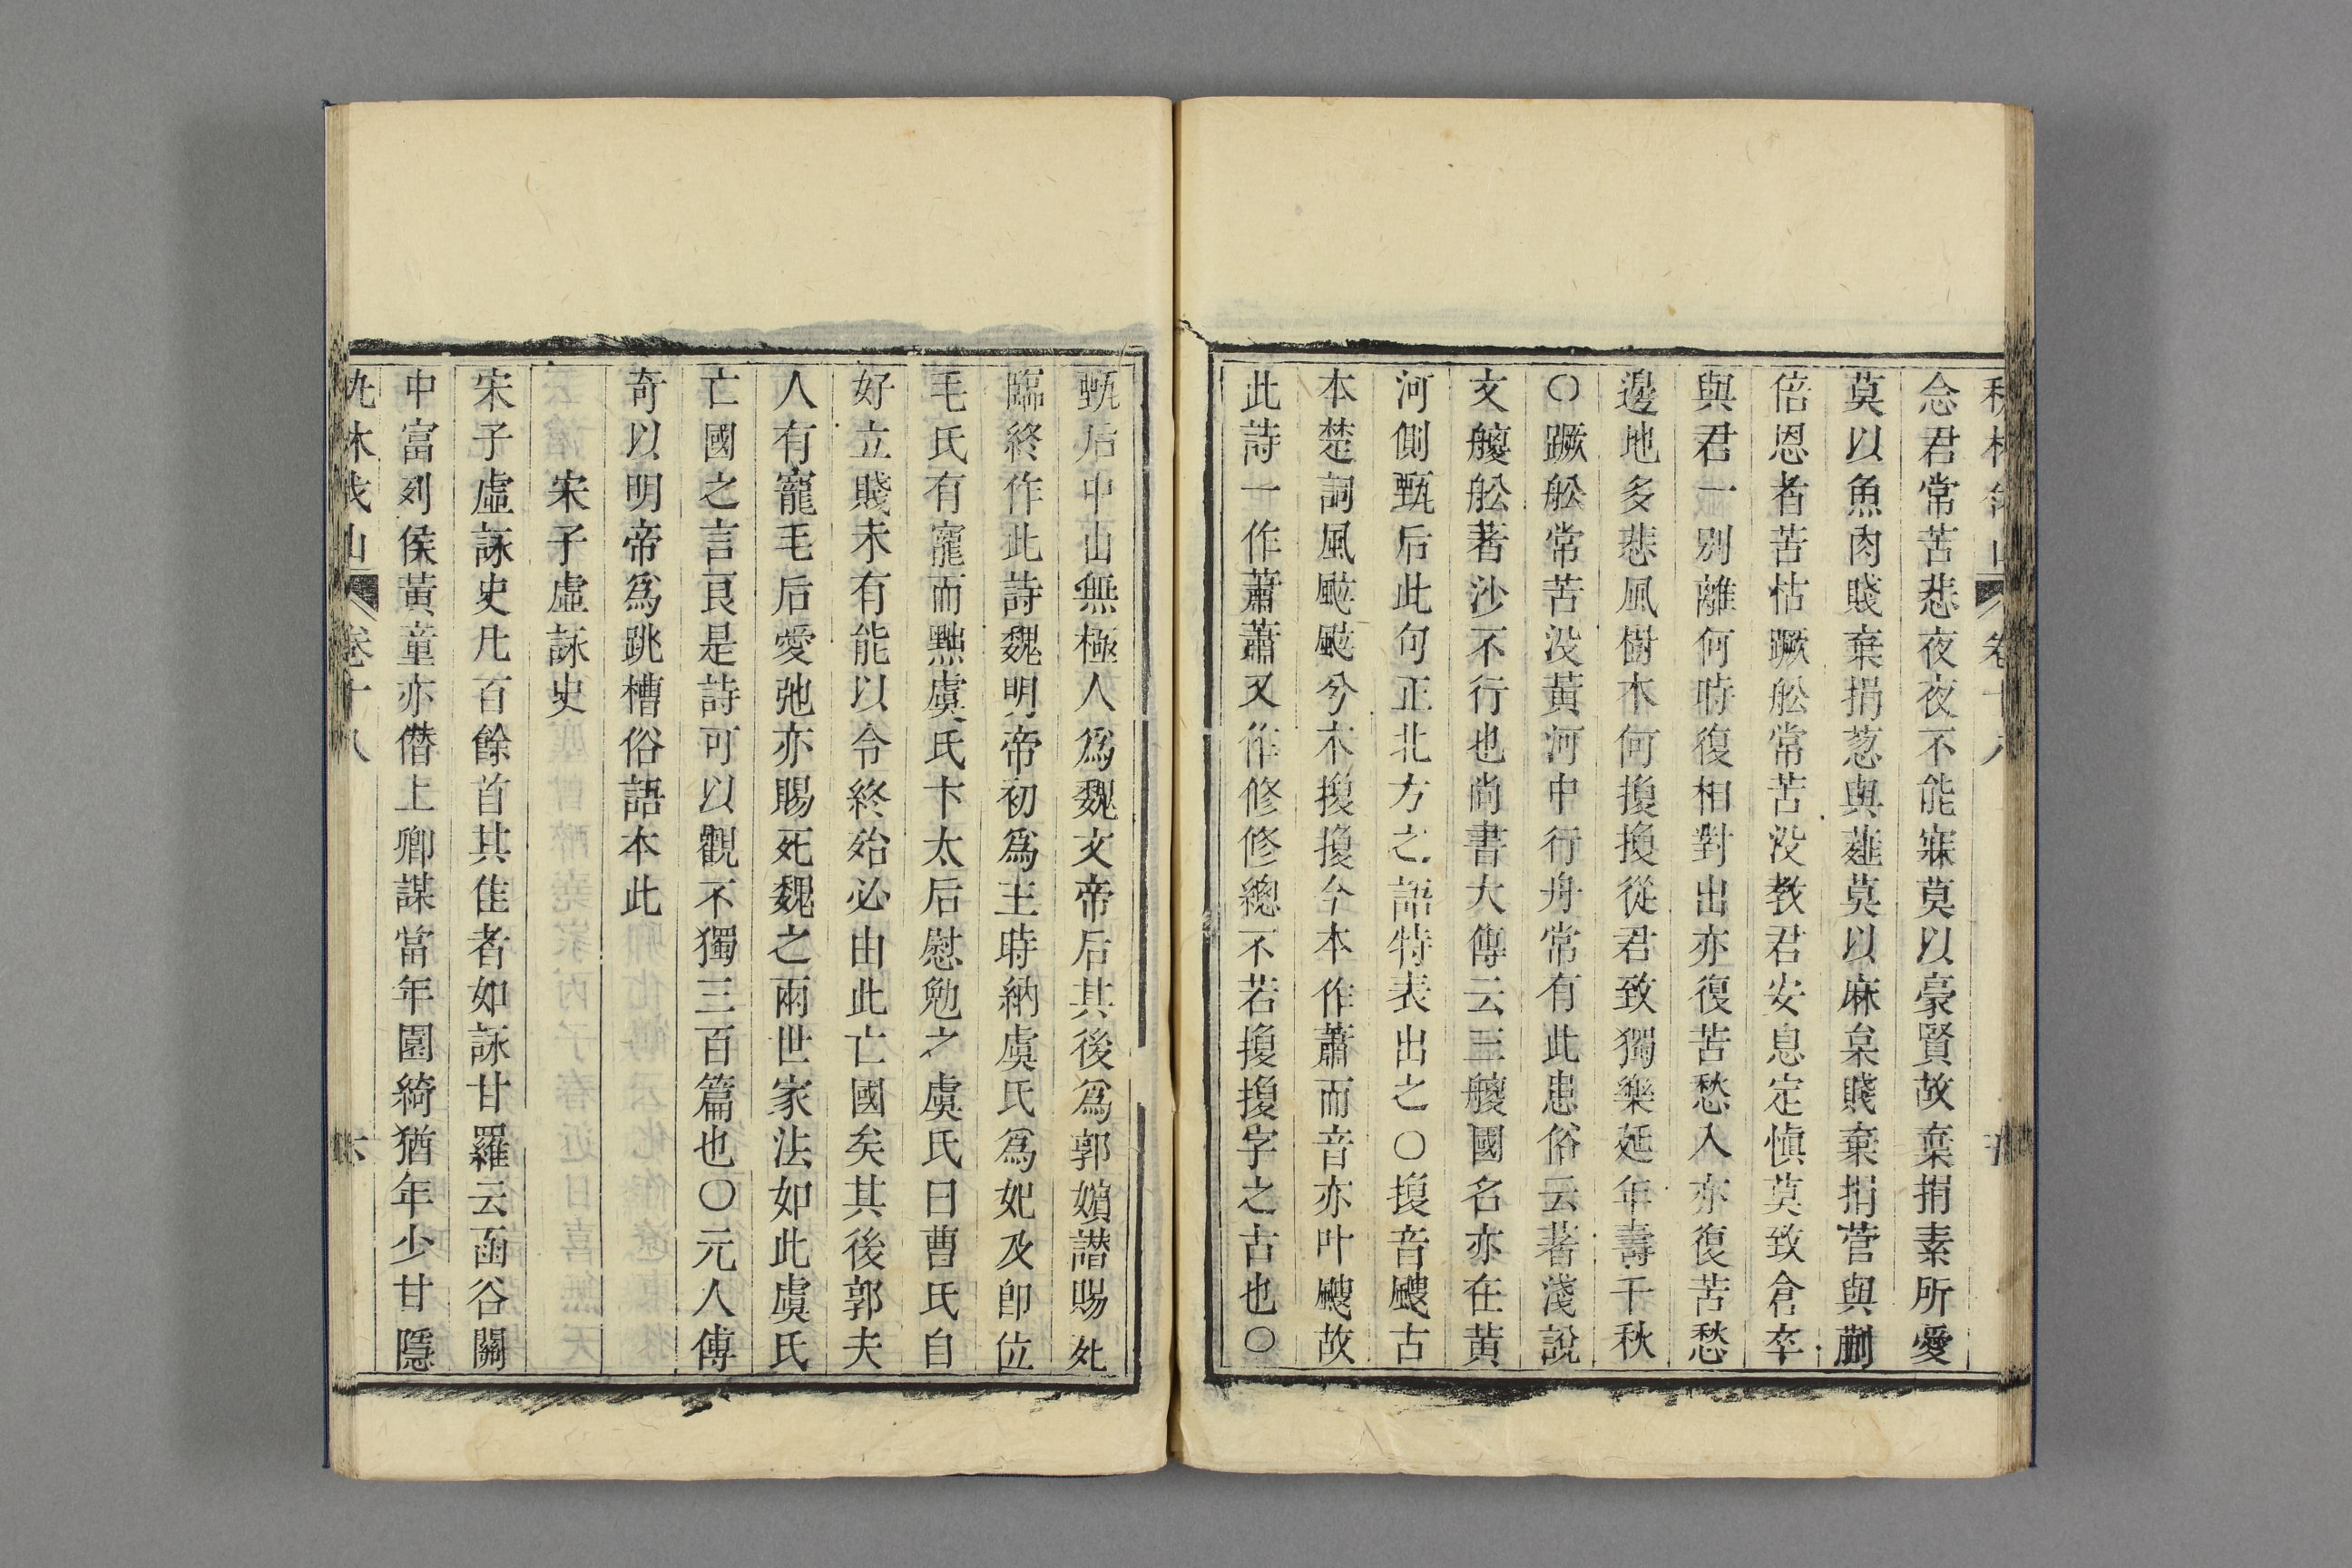 念君常苦悲夜夜不能寐莫以豪賢故棄捐素所愛
莫以魚肉賤棄捐葱與薤莫以麻枲賤棄捐菅與蒯
倍恩者苦枯蹶舩常苦没教君安息定慎莫致倉卒
與君一别離何時復相對出亦復苦愁入亦復苦愁
邊地多悲風樹木何搜搜從君致獨樂延年壽千秋
〇蹶舩常苦没黄河中行舟常有此患俗云著淺說
文艐舩著沙不行也尚書大傳云三艐國名亦在黄
河側甄后此句正北方之語特表出之〇搜音颼古
本楚詞風颸颸兮木搜搜今本作蕭而音亦叶颼故
此詩一作蕭蕭又作修修總不若搜搜字之古也〇
甄后中山無極人爲魏文帝后其後爲郭嬪譖賜死
臨終作此詩魏明帝初爲王時納虞氏爲妃及卽位
毛氏有寵而黜虞氏卞太后慰勉之虞氏曰曹氏自
好立賤未有能以令終殆必由此亡國矣其後郭夫
人有寵毛后愛弛亦賜死魏之兩世家法如此虞氏
亡國之言良是詩可以觀不獨三百篇也〇元人傳
奇以明帝爲跳槽俗語本此
宋子虛詠史
宋子虛詠史凡百餘首其佳者如詠甘羅云函谷關
中富列侯黄童亦僭上卿謀當年園綺猶年少甘隱
卷十八